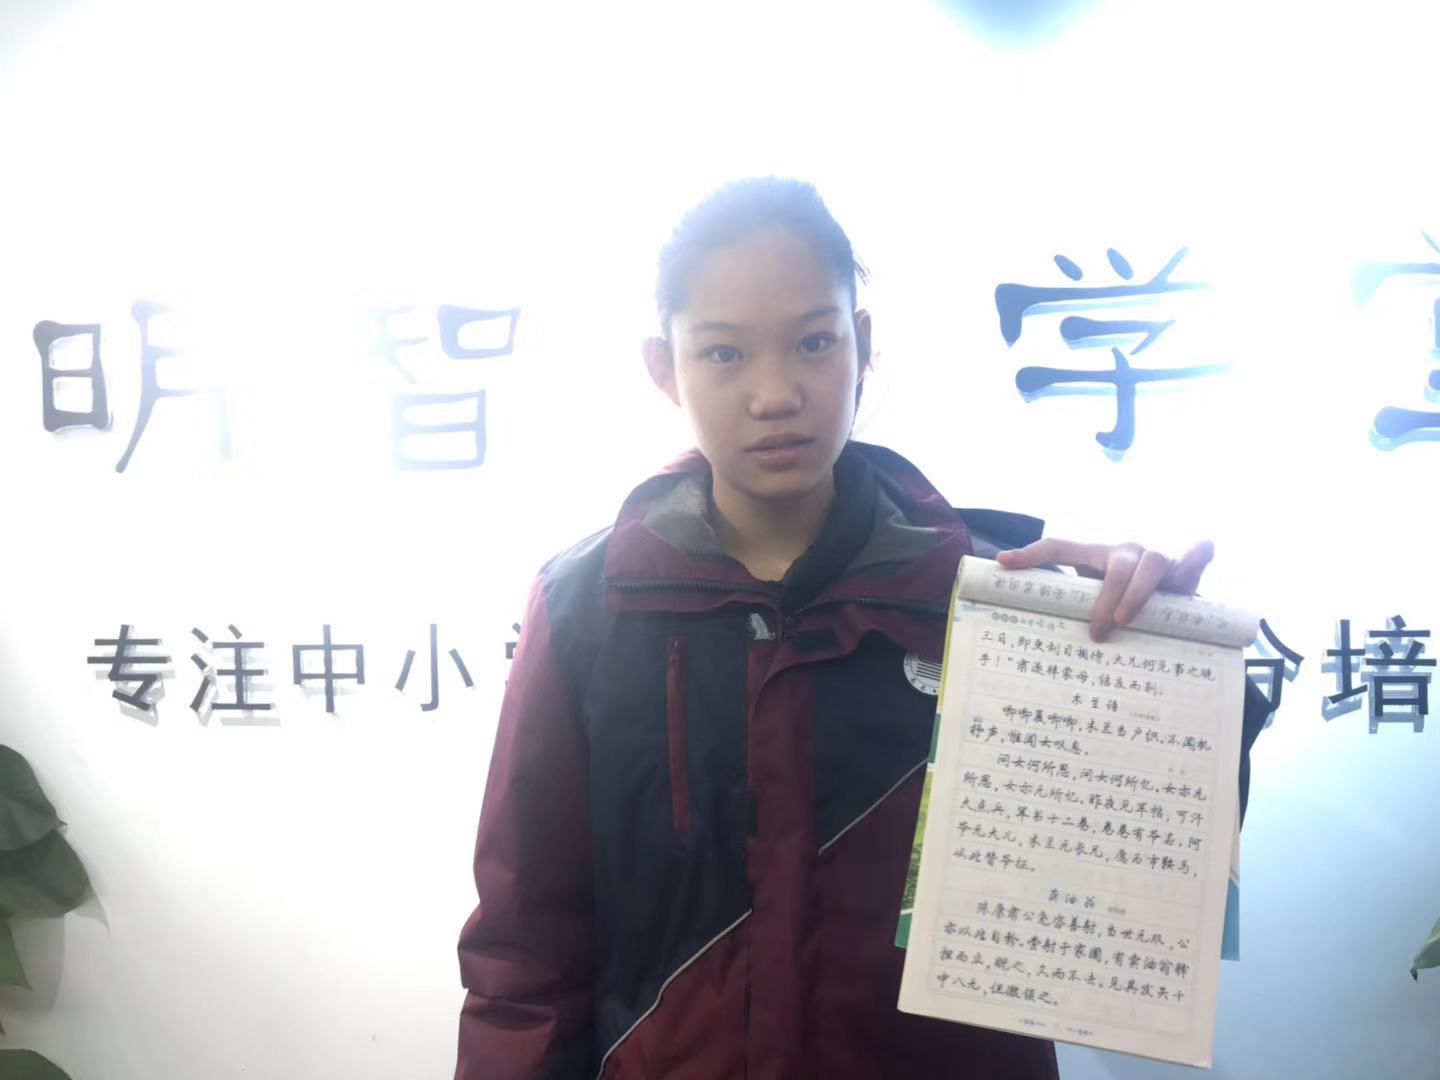 明智学堂
专注中小
培
三日，即更刮目相待，大兄何见事之晚
乎！”肃遂拜蒙母，结友而别。
木兰诗
唧唧复唧唧，木兰当户织。不闻机
杼声，惟闻女叹息。
问女何所思，问女何所忆。女亦无
所思，女亦无所忆。昨夜见军帖，可汗
大点兵，军书十二卷，卷卷有爷名。阿
爷无大儿，木兰无长兄，愿为市鞍马，
从此替爷征。
卖油翁
陈康肃公尧咨善射，当世无双，公
亦以此自矜。尝射于家圃，有卖油翁释
担而立，睨之，久而不去。见其发矢十
中八九，但微颔之。